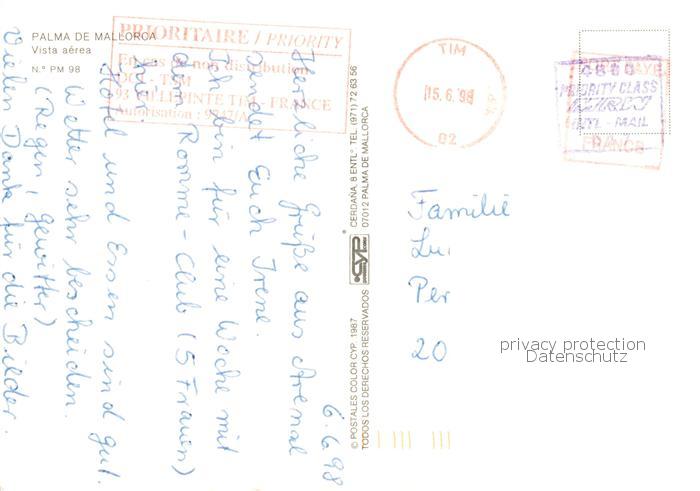 PALMA DE MALLORCA
Vista aérea
N.º PM 98
PRIORITAIRE / PRIORITY
En cas de non distribution
DOC - TIM
93 VILLEPINTE TIM - FRANCE
Autorisation : 9547/A
6.6.98
Herzliche Grüße aus Arenal
sendet Euch Irene.
Ich bin für eine Woche mit
dem Romme-Club (5 Frauen)
hier.
Hotel und Essen sind gut.
Wetter sehr bescheiden.
(Regen, Gewitter)
Vielen Dank für die Bilder.
© POSTALES COLOR CYP, 1987
TODOS LOS DERECHOS RESERVADOS
CYP
CERDAÑA, 8 ENTLº. TEL. (971) 72 63 56
07012 PALMA DE MALLORCA
TIM
15.6.98
02
PRIORITY CLASS
INTL - MAIL
FRANCE
Familie
Lu
Per
20
privacy protection
Datenschutz